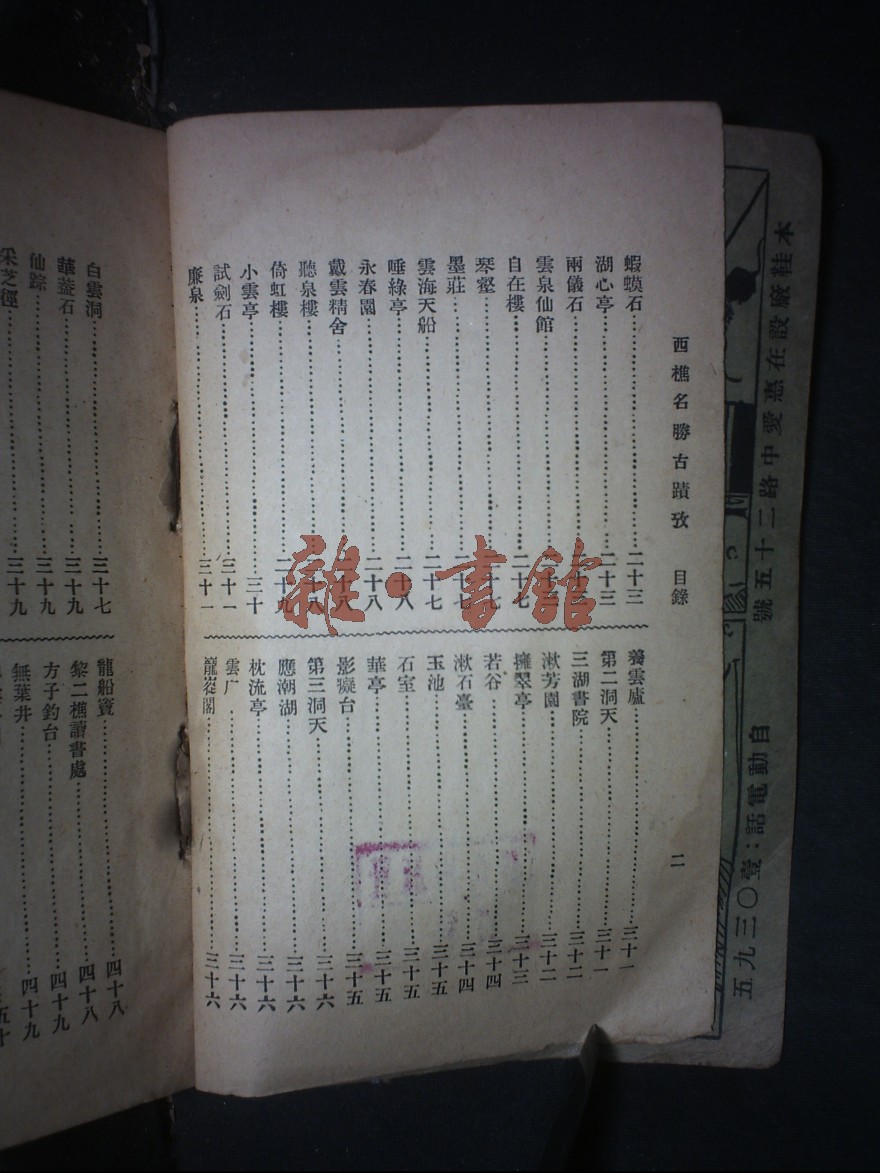 本鞋廠設在惠愛中路二十五號
自動電話：壹〇三九五
西樵名勝古蹟攷 目錄 二
蝦蟆石 二十三
湖心亭 二十三
兩儀石
雲泉仙館
自在樓 二十七
琴壑
墨莊 二十七
雲海天船 二十七
唾綠亭 二十八
永春園 二十八
戴雲精舍
聽泉樓
倚虹樓
小雲亭 三十
試劍石 三十一
廉泉 三十一
養雲廬 三十一
第二洞天 三十一
三湖書院 三十二
漱芳園 三十二
擁翠亭 三十三
若谷 三十四
漱石臺 三十四
玉池 三十五
石室 三十五
華亭 三十五
影癡台 三十五
第三洞天 三十六
應潮湖 三十六
枕流亭 三十六
雲广 三十六
龍崧閣 三十六
白雲洞 三十七
華蓋石 三十九
仙踪 三十九
采芝徑 三十九
龍船寶 四十八
黎二樵讀書處 四十八
方子釣台 四十九
無葉井 四十九
雜·書館